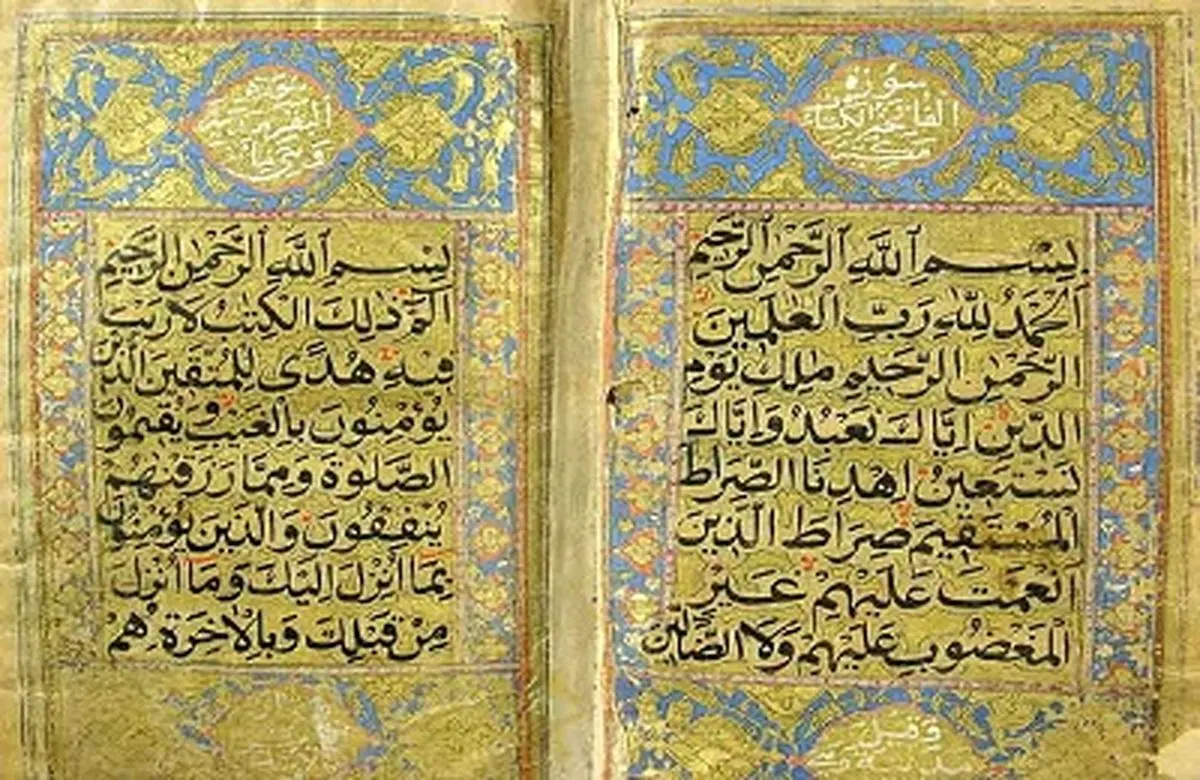 سورة
الفاتحة الكتاب
بِسْمِ ٱللَّهِ ٱلرَّحْمٰنِ ٱلرَّحِيمِ
اَلْحَمْدُ لِلّٰهِ رَبِّ الْعٰلَمِينَ
الرَّحْمٰنِ الرَّحِيمِ مٰلِكِ يَوْمِ
الدِّينِ اِيَّاكَ نَعْبُدُ وَاِيَّاكَ
نَسْتَعِينُ اِهْدِنَا الصِّرَاطَ
الْمُسْتَقِيمَ صِرَاطَ الَّذِينَ
اَنْعَمْتَ عَلَيْهِمْ غَيْرِ
الْمَغْضُوبِ عَلَيْهِمْ وَلَا الضَّالِّينَ
سورة
البقرة
بِسْمِ ٱللَّهِ ٱلرَّحْمٰنِ ٱلرَّحِيمِ
الٓمٓ ذٰلِكَ الْكِتٰبُ لَا رَيْبَ
فِيهِ هُدًى لِلْمُتَّقِينَ الَّذِينَ
يُؤْمِنُونَ بِالْغَيْبِ وَيُقِيمُونَ
الصَّلٰوةَ وَمِمَّا رَزَقْنٰهُمْ
يُنْفِقُونَ وَالَّذِينَ يُؤْمِنُونَ
بِمَا اُنْزِلَ اِلَيْكَ وَمَا اُنْزِلَ
مِنْ قَبْلِكَ وَبِالْاٰخِرَةِ هُمْ